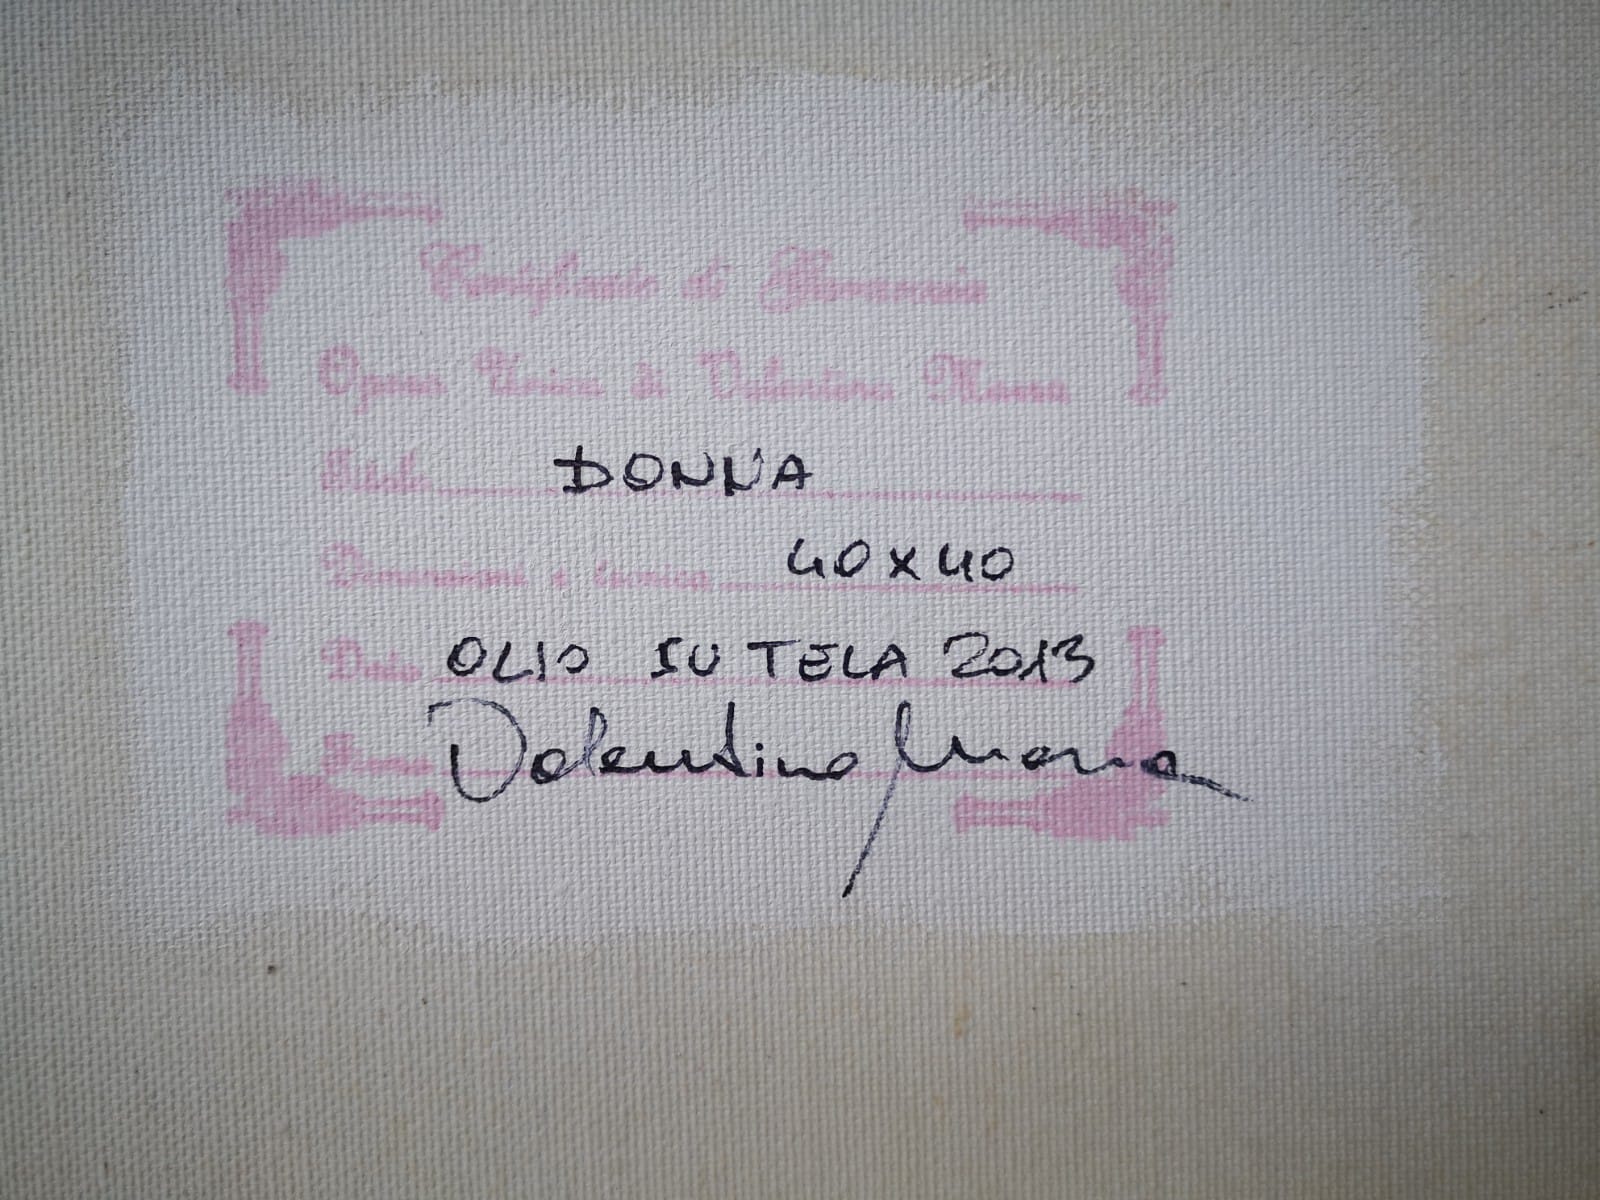 Certificato di Garanzia
Opera Unica di Valentina Massa
Titolo DONNA
Dimensioni e tecnica 40x40
Data OLIO SU TELA 2013
Firma Valentina